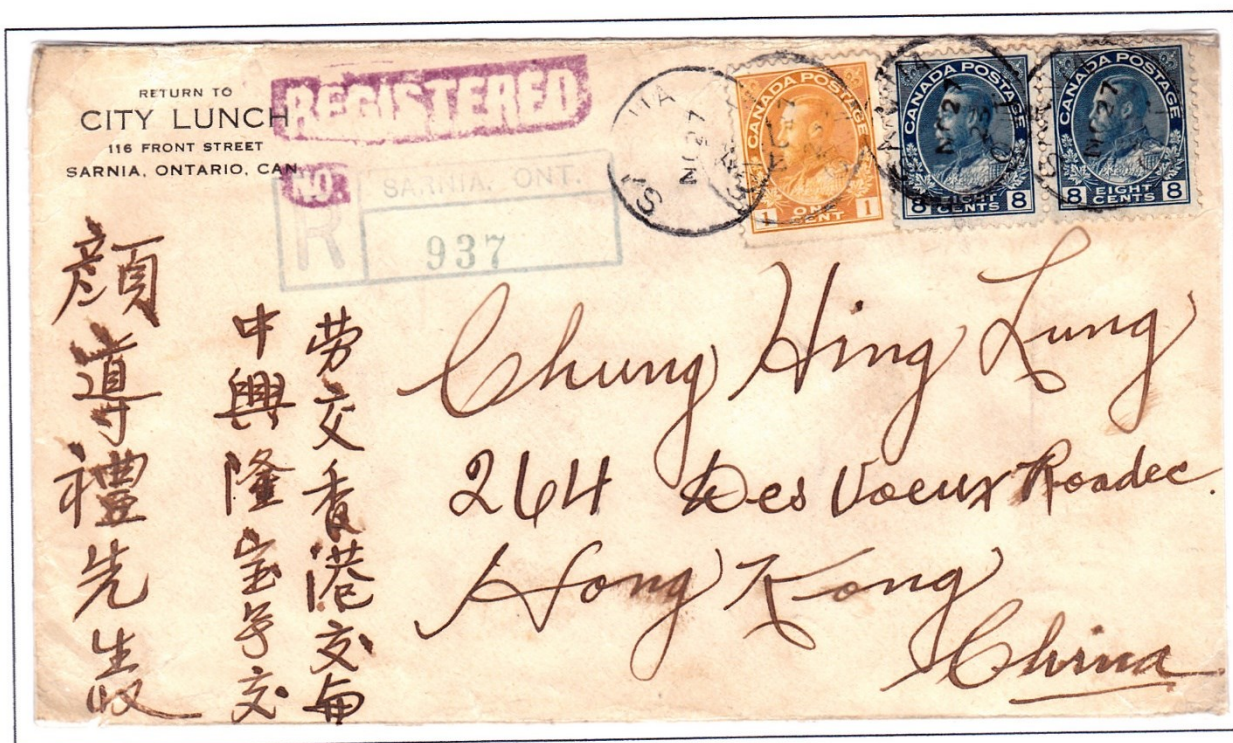 RETURN TO
CITY LUNCH
116 FRONT STREET
SARNIA, ONTARIO, CAN
REGISTERED
NO.
R
SARNIA, ONT.
937
CANADA POSTAGE
1 ONE CENT 1
CANADA POSTAGE
8 EIGHT CENTS 8
CANADA POSTAGE
8 EIGHT CENTS 8
Chung Hing Lung
264 Des Voeux Road
Hong Kong
China
劳交香港文甸
中興隆宝号交
顏導禮先生收